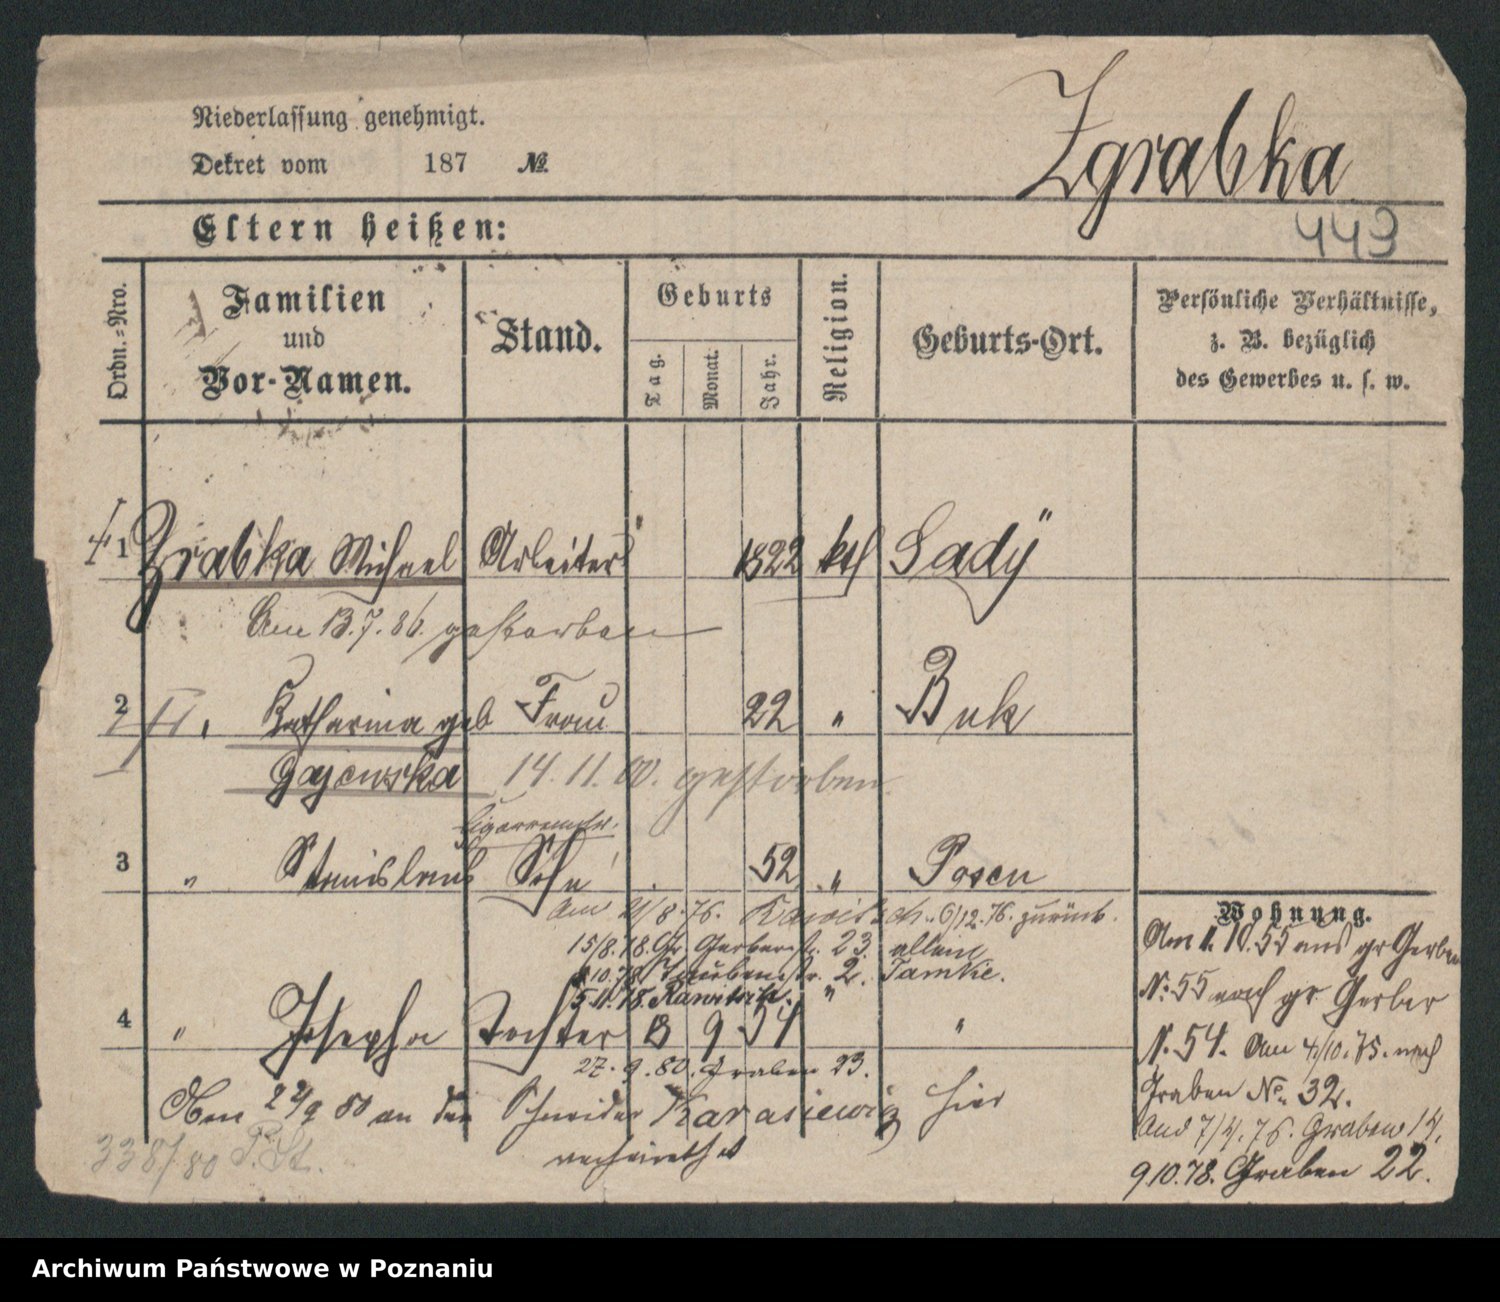 Niederlassung genehmigt.
Dekret vom 187 No.
Zgrabka
443
Eltern heißen:
Ordn.=Nro.
Familien
und
Vor-Namen.
Stand.
Geburts
Tag.
Monat.
Jahr.
Religion.
Geburts-Ort.
Persönliche Verhältnisse,
z. B. bezüglich
des Gewerbes u. s. w.
1 Zrabka Michael Arbeiter 1822 kth Sady
Am 13.7.86. gestorben
2 II. Katharina geb Frau 22 " Buk
Gajewska 14.11.00. gestorben
3 " Stanislaus Sohn 52 " Posen
Am 21/8.76. 6/12.76. zurück.
15/8.78. Gr. Gerberstr. 23. allein
10.78 Taubenstr. 2.
5.11.78. Rawitsch. "
4 " Josepha Tochter 13 9 54 "
27.9.80. Graben 23.
80 an den Schneider Karasiewicz hier
verheirathet
338/80 P. St.
Wohnung.
Am 1.10.55 aus gr Gerber
N: 55 nach gr Gerber
N. 54. Am 4/10.75. nach
Graben No. 32.
7/4.76. Graben 14.
9 10.78. Graben 22.
Archiwum Państwowe w Poznaniu